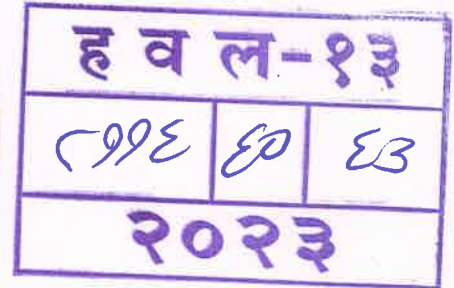 ह व ल-१३
८११६ ६० ६३
२०२३